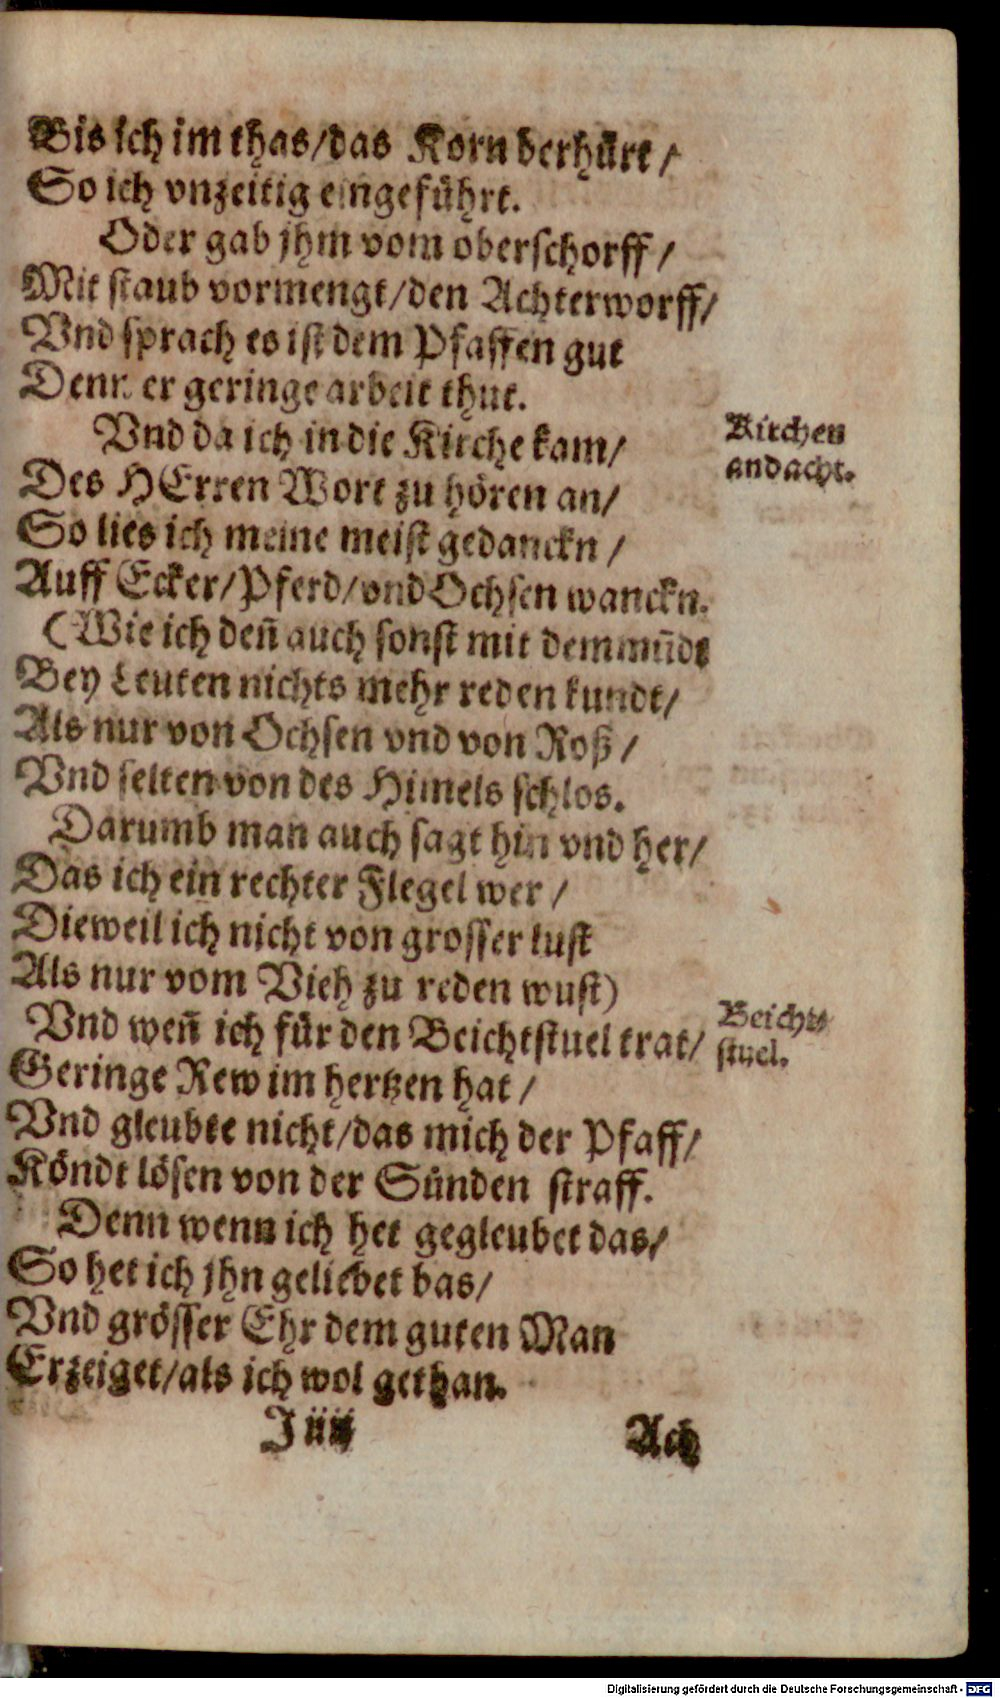 Bis ich im thas/das Korn derhürt/
So ich vnzeitig eingeführt.
Oder gab jhm vom oberschorff/
Mit staub vormengt/den Achterworff/
Vnd sprach es ist dem Pfaffen gut
Denn er geringe arbeit thut.
Vnd da ich in die Kirche kam/
Kirchen
andacht.
Des HErren Wort zu hören an/
So lies ich meine meist gedanckn/
Auff Ecker/Pferd/vnd Ochsen wanckn.
(Wie ich deñ auch sonst mit dem mūdt
Bey Leuten nichts mehr reden kundt/
Als nur von Ochsen vnd von Roß/
Vnd selten von des Himels schlos.
Darumb man auch sagt hin vnd her/
Das ich ein rechter Flegel wer/
Dieweil ich nicht von grosser lust
Als nur vom Vieh zu reden wust)
Vnd weñ ich für den Beichtstuel trat/
Beicht
stuel.
Geringe Rew im hertzen hat/
Vnd gleubte nicht/das mich der Pfaff/
Köndt lösen von der Sünden straff.
Denn wenn ich het gegleubet das/
So het ich jhn geliebet bas/
Vnd grösser Ehr dem guten Man
Erzeiget/als ich wol gethan.
J iiij
Ach
Digitalisierung gefördert durch die Deutsche Forschungsgemeinschaft - DFG